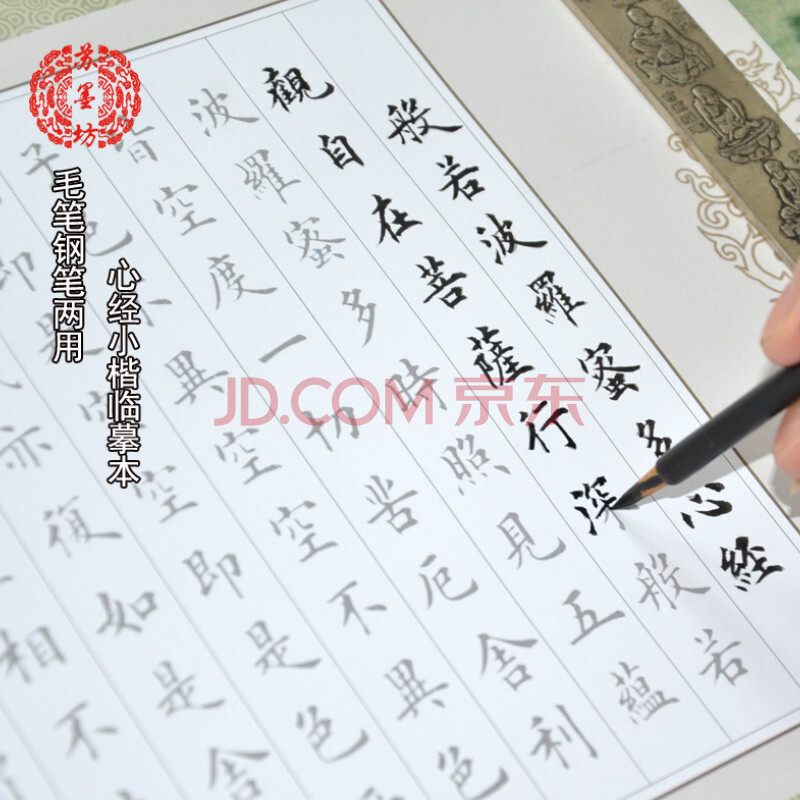 蘇墨坊
毛笔钢笔两用
心经小楷临摹本
JD.COM 京东
般若波羅蜜多心經
觀自在菩薩行深般若
波羅蜜多時照見五蘊
皆空度一切苦厄舍利
子色不異空空不異色
即是空空即是色
亦復如是舍
相不